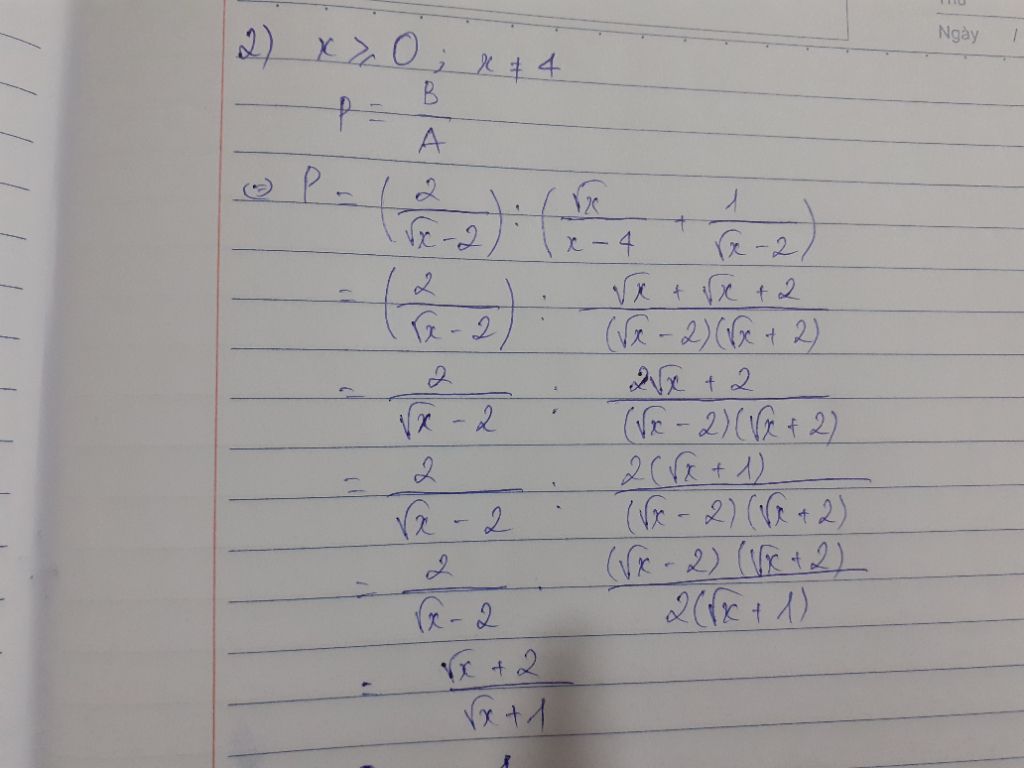 Ngày
2) x ≥ 0 ; x ≠ 4
P = B/A
⇔ P = (2/(√x - 2)) : (√x/(x - 4) + 1/(√x - 2))
= (2/(√x - 2)) : (√x + √x + 2)/((√x - 2)(√x + 2))
= 2/(√x - 2) : (2√x + 2)/((√x - 2)(√x + 2))
= 2/(√x - 2) : 2(√x + 1)/((√x - 2)(√x + 2))
= 2/(√x - 2) . (√x - 2)(√x + 2)/(2(√x + 1))
= (√x + 2)/(√x + 1)